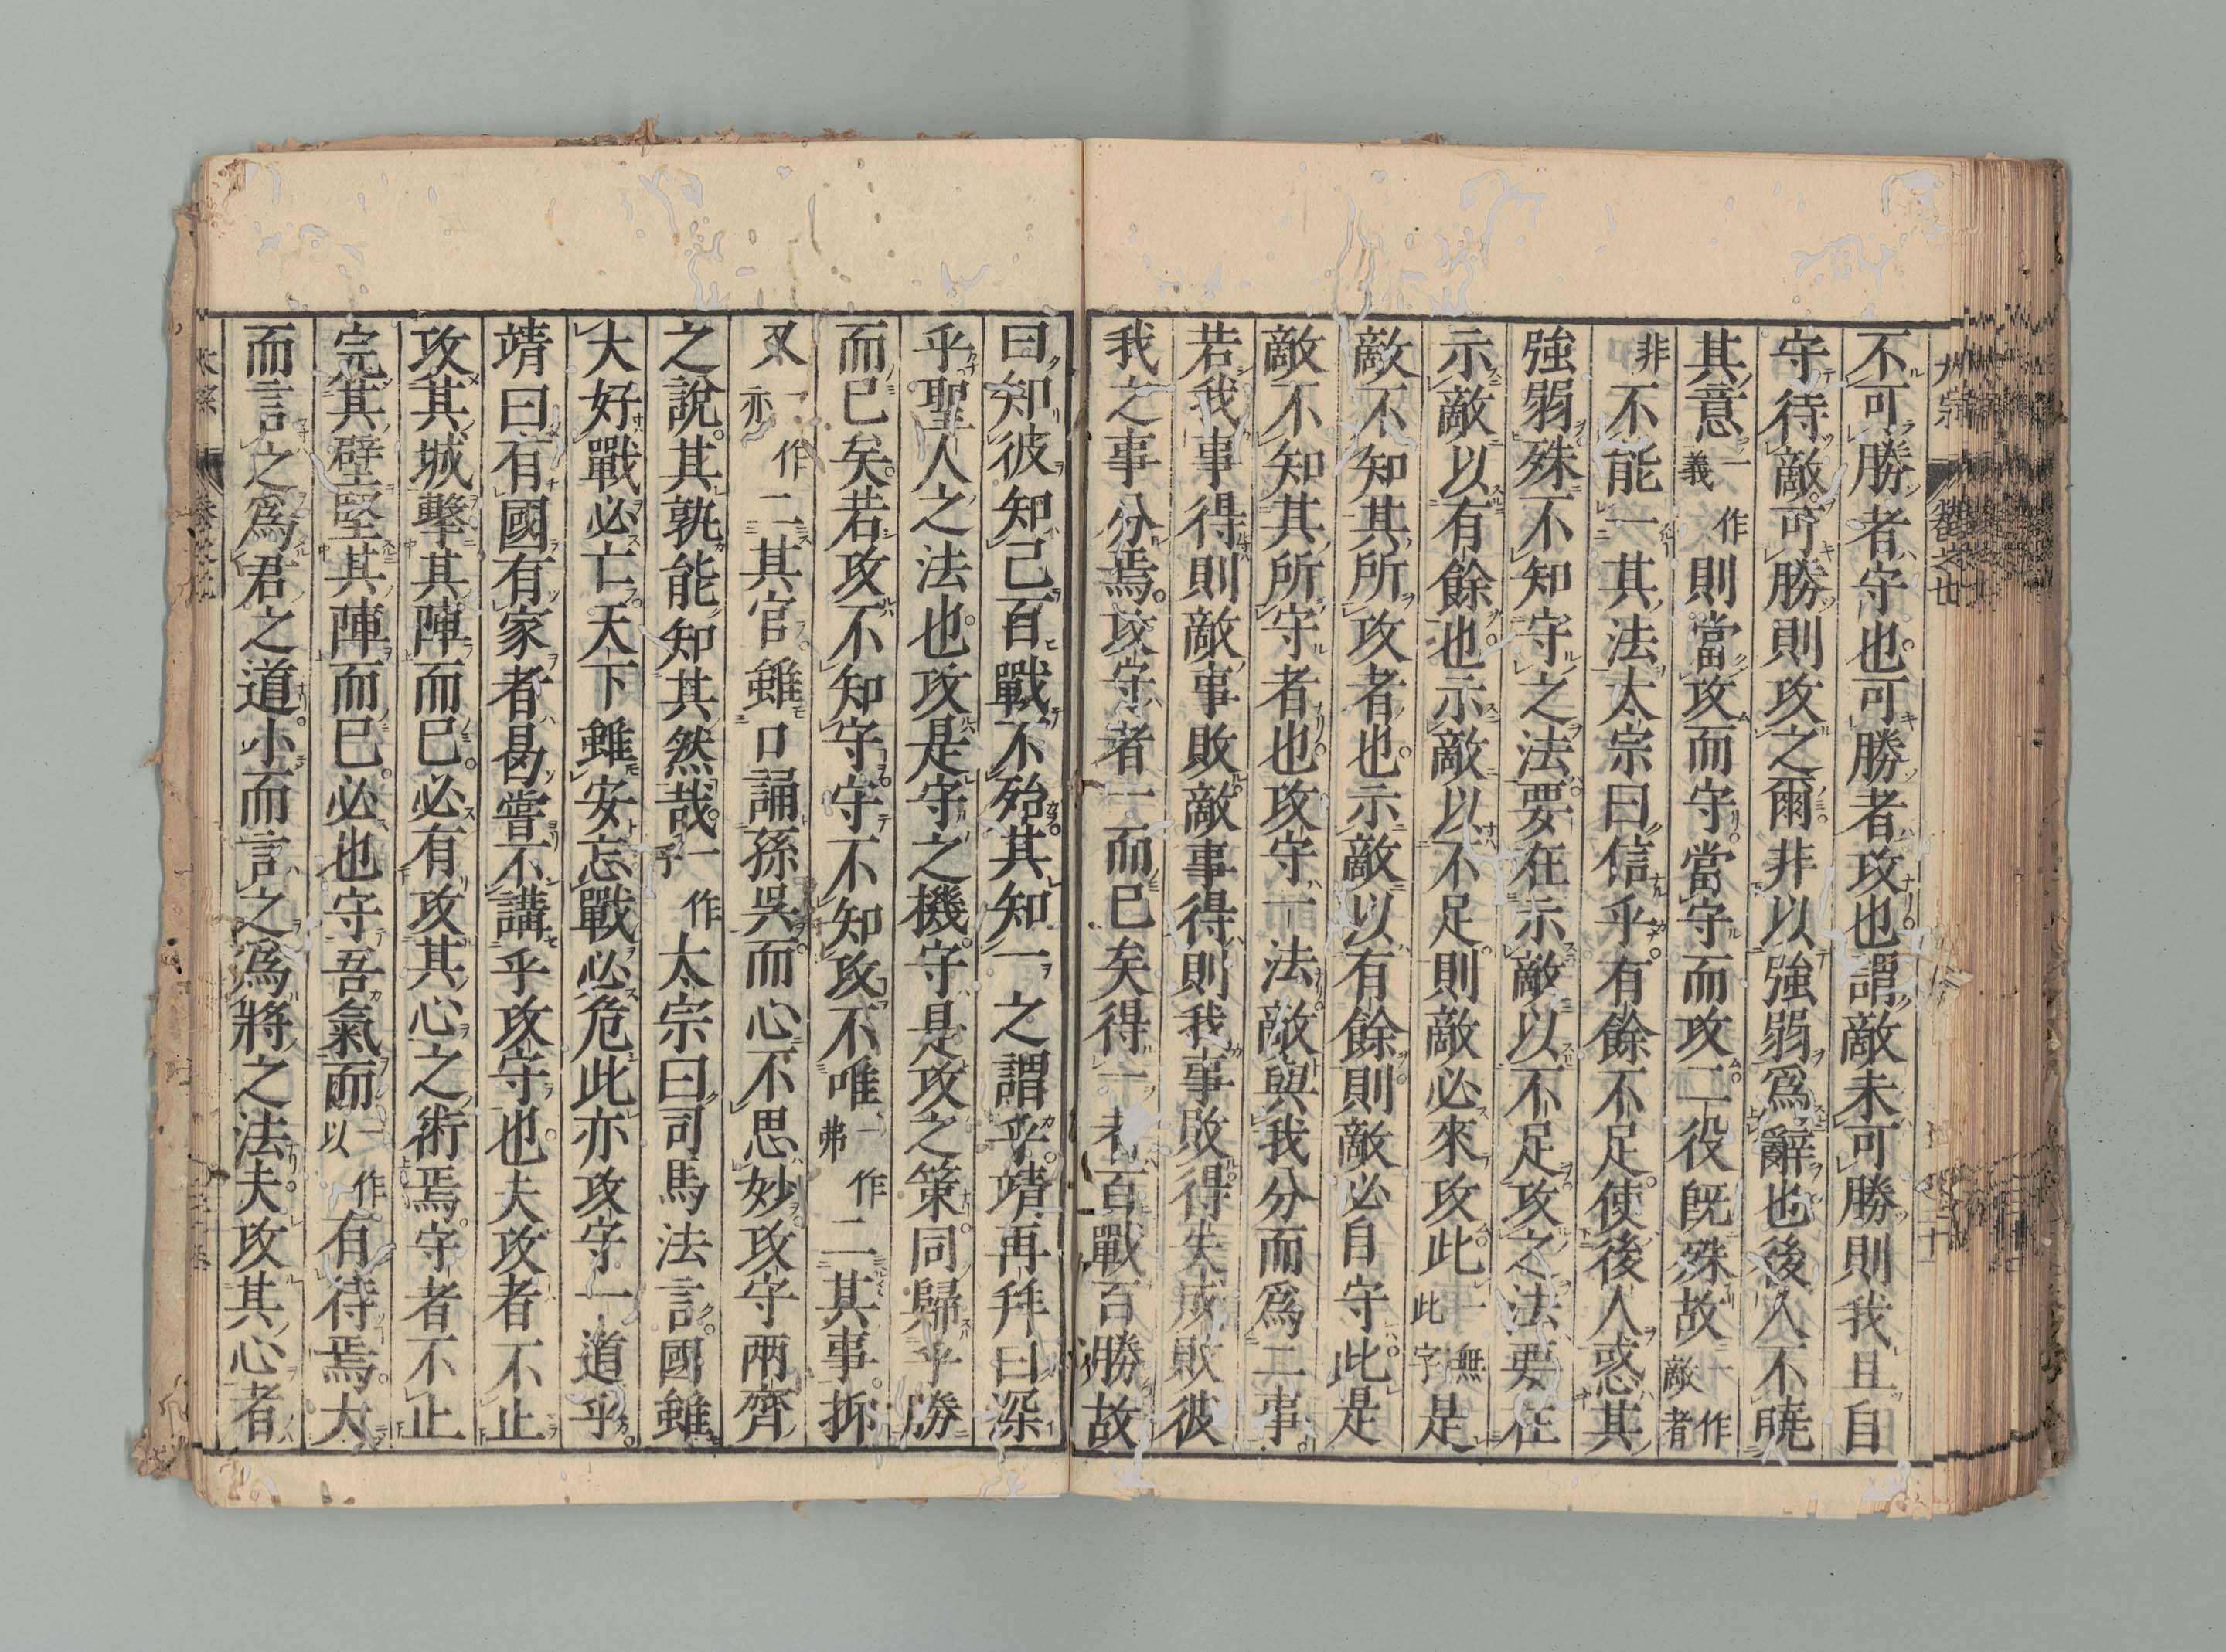 不可勝者守也可勝者攻也謂敵未可勝則我且自
守待敵可勝則攻之爾非以強弱爲辭也後人不曉
其意一作義則當攻而守當守而攻二役旣殊故一作敵者
非不能一其法太宗曰信乎有餘不足使後人惑其
強弱殊不知守之法要在示敵以不足攻之法要在
示敵以有餘也示敵以不足則敵必來攻此一無此字是
敵不知其所攻者也示敵以有餘則敵必自守此是
敵不知其所守者也攻守一法敵與我分而爲二事
若我事得則敵事敗敵事得則我事敗得失成敗彼
我之事分焉攻守者一而已矣得一者百戰百勝故
曰知彼知己百戰不殆其知一之謂乎靖再拜曰深
乎聖人之法也攻是守之機守是攻之策同歸乎勝
而已矣若攻不知守守不知攻不唯一作弗二其事拆
又一作亦二其官雖口誦孫吳而心不思妙攻守兩齊
之說其孰能知其然哉一作乎太宗曰司馬法言國雖
大好戰必亡天下雖安忘戰必危此亦攻守一道乎
靖曰有國有家者曷嘗不講乎攻守也夫攻者不止
攻其城擊其陣而已必有攻其心之術焉守者不止
完其壁堅其陣而已必也守吾氣而一作以有待焉大
而言之爲君之道小而言之爲將之法夫攻其心者